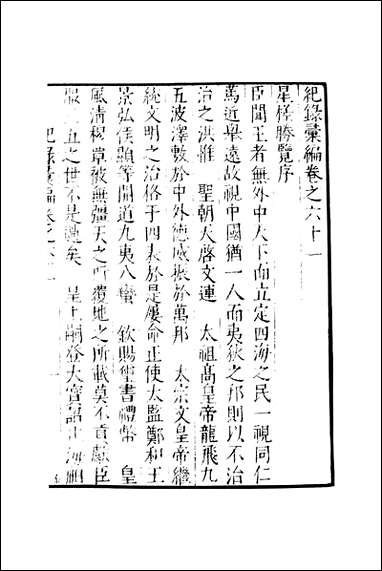 紀録彙編卷之六十一
星槎勝覽序
臣聞王者無外中天下而立定四海之民一視同仁
篤近舉遠故視中國猶一人而夷狄之邦則以不治
治之洪惟　聖朝天啓文運　太祖高皇帝龍飛九
五波澤敷於中外德威振於萬邦　太宗文皇帝繼
統文明之治格于四表於是屢命正使太監鄭和王
景弘侯顯等開道九夷八蠻　欽賜璽書禮幣　皇
風清穆覃被無疆天之所覆地之所載莫不貢獻臣
服　五之世不是過矣　皇上嗣登大寶詔止海
紀錄彙編卷之六 一